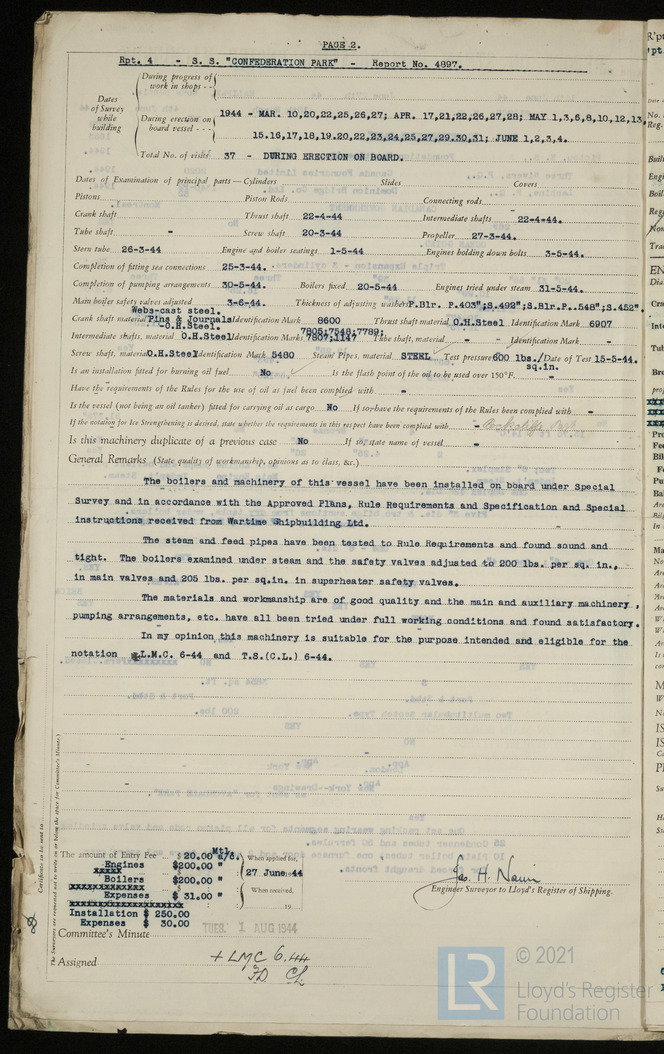 PAGE 2.
Rpt. 4 - S. S. "CONFEDERATION PARK" - Report No. 4897.
Dates of Survey while building
During progress of work in shops - -
During erection on board vessel - - -
1944 - MAR. 10,20,22,25,26,27; APR. 17,21,22,26,27,28; MAY 1,3,6,8,10,12,13,
15.16,17,18,19.20,22,23,24,25,27,29.30,31; JUNE 1,2,3,4.
Total No. of visits 37 - DURING ERECTION ON BOARD.
Dates of Examination of principal parts—Cylinders Slides Covers
Pistons Piston Rods Connecting rods
Crank shaft Thrust shaft 22-4-44 Intermediate shafts 22-4-44.
Tube shaft - Screw shaft 20-3-44 Propeller 27-3-44.
Stern tube 26-3-44 Engine and boiler seatings 1-5-44 Engines holding down bolts 3-5-44.
Completion of fitting sea connections 25-3-44.
Completion of pumping arrangements 30-5-44. Boilers fixed 20-5-44 Engines tried under steam 31-5-44.
Main boiler safety valves adjusted 3-6-44. Thickness of adjusting washers P.Blr. P.403";S.492";S.Blr.P..548";S.452".
Webs-cast steel.
Crank shaft material Pins & Journals Identification Mark 8600 Thrust shaft material O.H.Steel Identification Mark 6907
-O.H.Steel. 7805;7548;7789;
Intermediate shafts, material O.H.Steel Identification Marks 7807;1147 Tube shaft, material - Identification Mark -
Screw shaft, material O.H.Steel Identification Mark 5480 Steam Pipes, material STEEL Test pressure 600 lbs./ Date of Test 15-5-44.
sq.in.
Is an installation fitted for burning oil fuel No Is the flash point of the oil to be used over 150°F. -
Have the requirements of the Rules for the use of oil as fuel been complied with -
Is the vessel (not being an oil tanker) fitted for carrying oil as cargo No If so, have the requirements of the Rules been complied with -
If the notation for Ice Strengthening is desired, state whether the requirements in this respect have been complied with -
Is this machinery duplicate of a previous case No If so, state name of vessel -
General Remarks (State quality of workmanship, opinions as to class, &c.)
The boilers and machinery of this vessel have been installed on board under Special
Survey and in accordance with the Approved Plans, Rule Requirements and Specification and Special
instructions received from Wartime Shipbuilding Ltd.
The steam and feed pipes have been tested to Rule Requirements and found sound and
tight. The boilers examined under steam and the safety valves adjusted to 200 lbs. per sq. in.,
in main valves and 205 lbs. per sq.in. in superheater safety valves.
The materials and workmanship are of good quality and the main and auxiliary machinery,
pumping arrangements, etc. have all been tried under full working conditions and found satisfactory.
In my opinion this machinery is suitable for the purpose intended and eligible for the
notation L.M.C. 6-44 and T.S.(C.L.) 6-44.
Certificate to be sent to
The Surveyors are requested not to write on or below the space for Committee's Minute.
The amount of Entry Fee .. $20.00 Mtl. a/c.
Engines $200.00 "
Boilers $200.00 "
Expenses $ 31.00 "
Installation $ 250.00
Expenses $ 30.00
When applied for,
27 June 1944
When received,
19
Jas. H. Nairn
Engineer Surveyor to Lloyd's Register of Shipping.
Committee's Minute TUES. 1 AUG 1944
Assigned + LMC 6.44
FD CL
LR
© 2021
Lloyd's Register
Foundation